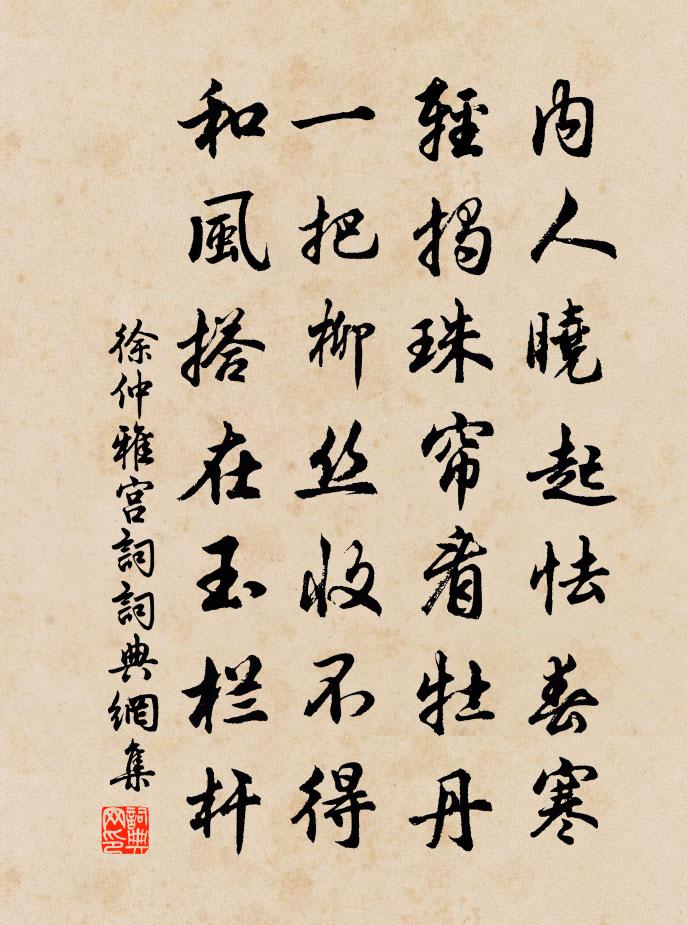 内人曉起怯春寒
輕揭珠帘看牡丹
一把柳丝收不得
和風搭在玉栏杆
徐仲雅宫詞詞典網集
詞典
网印